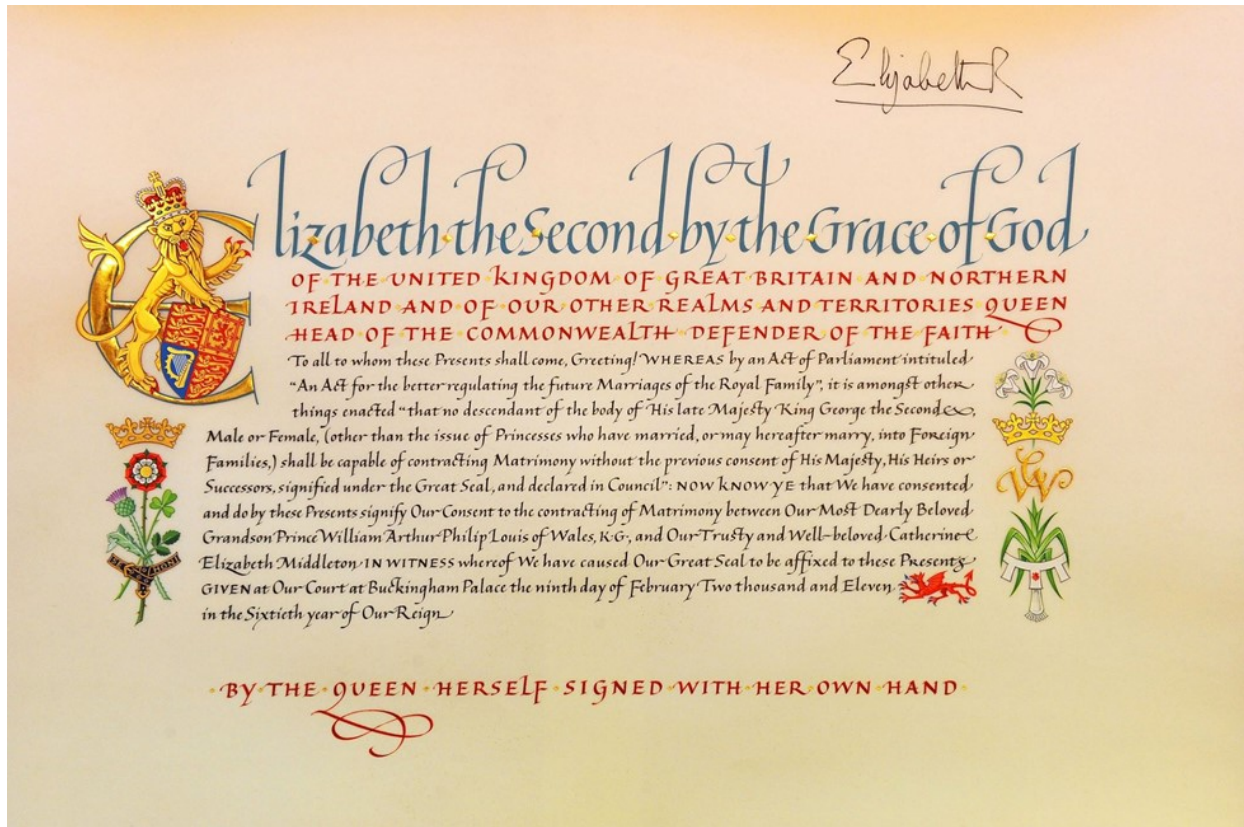 Elizabeth R
Elizabeth the Second by the Grace of God
OF THE UNITED KINGDOM OF GREAT BRITAIN AND NORTHERN
IRELAND AND OF OUR OTHER REALMS AND TERRITORIES QUEEN
HEAD OF THE COMMONWEALTH DEFENDER OF THE FAITH
To all to whom these Presents shall come, Greeting! WHEREAS by an Act of Parliament intituled
"An Act for the better regulating the future Marriages of the Royal Family", it is amongst other
things enacted "that no descendant of the body of His late Majesty King George the Second,
Male or Female, (other than the issue of Princesses who have married, or may hereafter marry, into Foreign
Families,) shall be capable of contracting Matrimony without the previous consent of His Majesty, His Heirs or
Successors, signified under the Great Seal, and declared in Council": NOW KNOW YE that We have consented
and do by these Presents signify Our Consent to the contracting of Matrimony between Our Most Dearly Beloved
Grandson Prince William Arthur Philip Louis of Wales, K·G·, and Our Trusty and Well-beloved Catherine
Elizabeth Middleton IN WITNESS whereof We have caused Our Great Seal to be affixed to these Presents
GIVEN at Our Court at Buckingham Palace the ninth day of February Two thousand and Eleven
in the Sixtieth year of Our Reign
BY THE QUEEN HERSELF SIGNED WITH HER OWN HAND